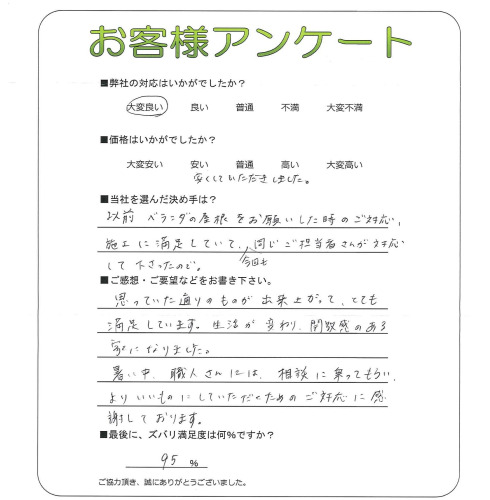 お客様アンケート
■弊社の対応はいかがでしたか？
大変良い　良い　普通　不満　大変不満
■価格はいかがでしたか？
大変安い　安い　普通　高い　大変高い
安くしていただきました。
■当社を選んだ決め手は？
以前 ベランダの屋根をお願いした時のご対応、
施工に満足していて、今回も同じご担当者さんが対応
して下さったので。
■ご感想・ご要望などをお書き下さい。
思っていた通りのものが出来上がって、とても
満足しています。生活が変わり、開放感のある
家になりました。
暑い中、職人さんには、相談に乗ってもらい、
よりいいものにしていただくためのご対応に感
謝しております。
■最後に、ズバリ満足度は何%ですか？
95 %
ご協力頂き、誠にありがとうございました。